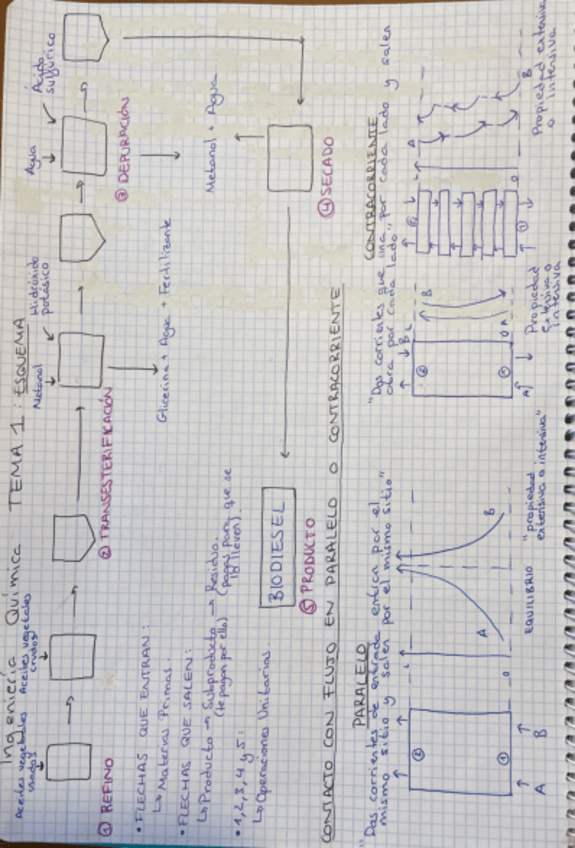 Ingeniería Química TEMA 1: ESQUEMA
Aceites vegetales usados
Aceites vegetales crudos
Metanol
Hidróxido potásico
Agua
Ácido sulfúrico
① REFINO
② TRANSESTERIFICACIÓN
③ DEPURACIÓN
Glicerina + Agua + Fertilizante
Metanol + Agua
④ SECADO
• FLECHAS QUE ENTRAN:
↳ Materias Primas.
• FLECHAS QUE SALEN:
↳ Producto → Subproducto → Residuo.
(te pagan por ello) (pagas para que se lo lleven).
• 1, 2, 3, 4 y 5:
↳ Operaciones Unitarias.
BIODIESEL
⑤ PRODUCTO
CONTACTO CON FLUJO EN PARALELO O CONTRACORRIENTE
PARALELO
"Dos corrientes de entrada entran por el
mismo sitio y salen por el mismo sitio"
②
①
A B
L
O
A
B
EQUILIBRIO
"propiedad
extensiva o intensiva"
CONTRACORRIENTE
"Dos corrientes que una por cada lado y salen
otra por cada lado"
B L
②
①
A
B
O A
Propiedad
extensiva o
intensiva
②
①
L
O
A
B
Propiedad extensiva
o intensiva